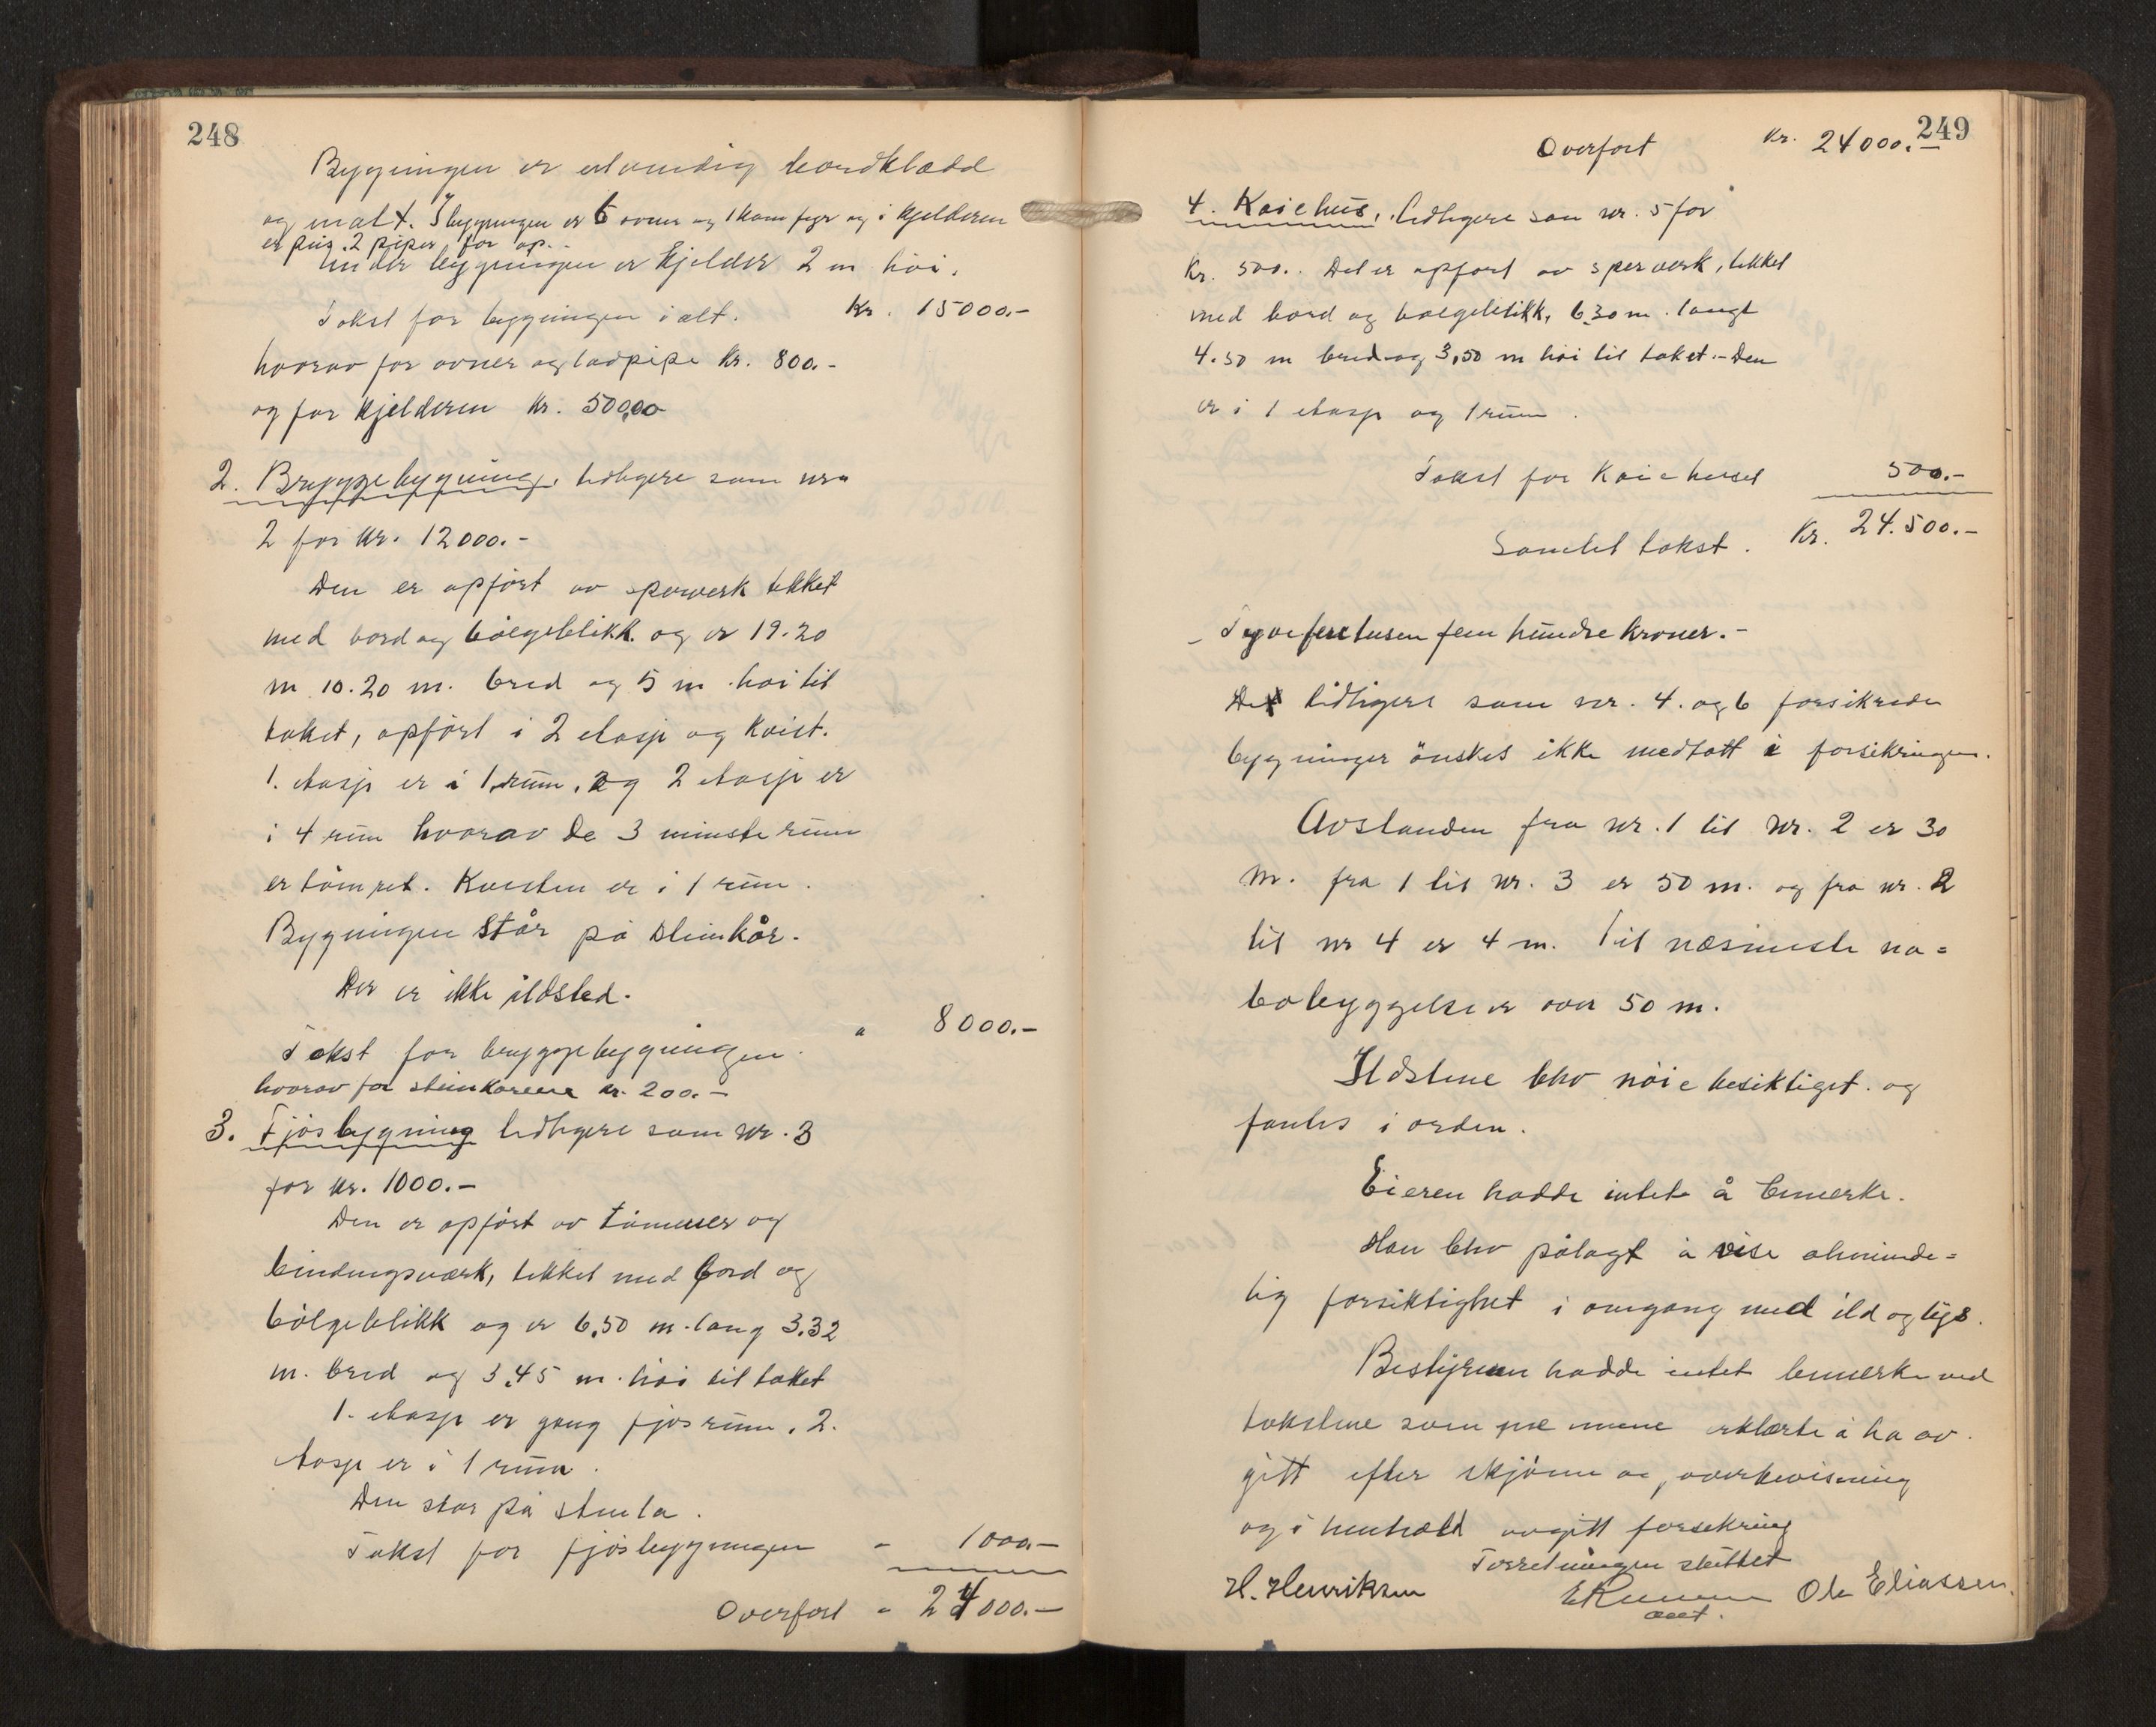 248
Bygningen er utvendig bordklædd
og malt. I bygningen er 6 ovner og 1 komfyr og i kjelderen
er peis. 2 piper før op.
Under bygningen er kjelder 2 m höi.
Takst for bygningen i alt. Kr. 15000.-
hvorav for ovner og ladpipe Kr. 800.-
og for kjelderen Kr. 500,00
2. Bryggebygning, tidligere som nr.
2 for Kr. 12000.-
Den er opfört av sperverk tekket
med bord og bölgeblikk og er 19.20
m 10.20 m. bred og 5 m. höi til
taket, opfört i 2 etasje og kvist.
1. etasje er i 1 rüm, og 2 etasje er
i 4 rüm hvorav de 3 minste rüm
er tömret. Kvisten er i 1 rüm.
Bygningen står på steinkår.
Der er ikke ildsted.
Takst for bryggebygningen. " 8000.-
hvorav for steinkarene kr. 200.-
3. Fjösbygning tidligere som nr. 3
for Kr. 1000.-
Den er opfört av tömmer og
bindingsværk, tekket med bord og
bölgeblikk og er 6,50 m. lang 3.32
m. bred og 3,45 m. höi til taket
1. etasje er gang fjösrüm. 2.
etasje er i 1 rüm.
Den står på stenla.
Takst for fjösbygningen " 1000.-
Overfört " 24000.-
249
Overfört Kr. 24000.-
4. Kaiehüs, tidligere som nr. 5 for
Kr. 500.. Det er opfört av sperverk, tekket
med bord og bölgeblikk, 6.30 m. langt
4.50 m bred og 3,50 m höi til taket.- Den
er i 1 etasje og 1 rüm.
Takst for Kaiehuset 500.-
Samlet takst. Kr. 24.500.-
- Tyvefiretusen fem hündre kroner.-
De tidligere som nr. 4. og 6 forsikrede
bygninger önskes ikke medtatt i forsikringen.
Avstanden fra nr. 1 til nr. 2 er 30
m. fra 1 til nr. 3 er 50 m. og fra nr. 2
til nr 4 er 4 m. Til næsmeste na=
bobyggelse er over 50 m.
Ildstene blev nöie besiktiget og
fantes i orden.
Eieren hadde intet å bemerke.
Han blev pålagt å vise alminde=
lig forsiktighet i omgang med ild og lys.
Bestyreren hadde intet bemerke ved
takstene som mennene erklærte å ha av
gitt efter skjönn og overbevisning
og i henhold avgitt forsikring
Forretningen sluttet
H. Henriksen Ole Eliassen.